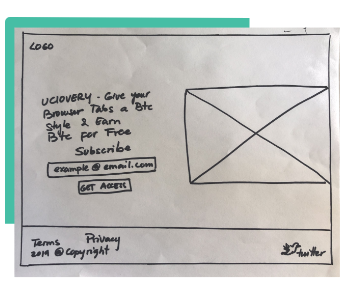 LOGO
UCIOVERY - Give your
Browser Tabs a Btc
Style & Earn
Btc for Free
Subscribe
example@email.com
GET ACCESS
Terms Privacy
2019 © Copyright
twitter